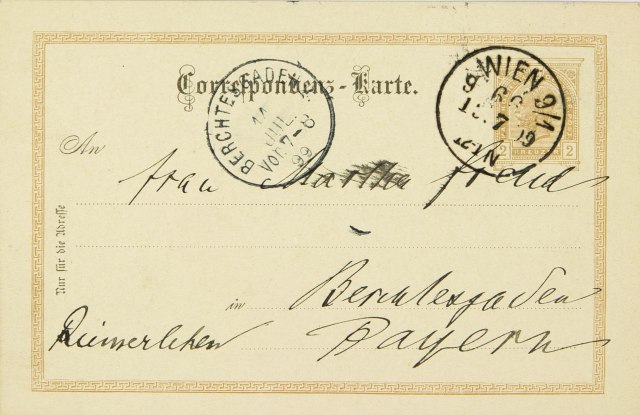 Correspondenz-Karte.
BERCHTESGADEN
11
JUL.
Vor. 7-8
99
WIEN 9/1
2
2
An
Frau Martha Freud
Nur für die Adresse
in
Berchtesgaden
Riemerlehen
Bayern